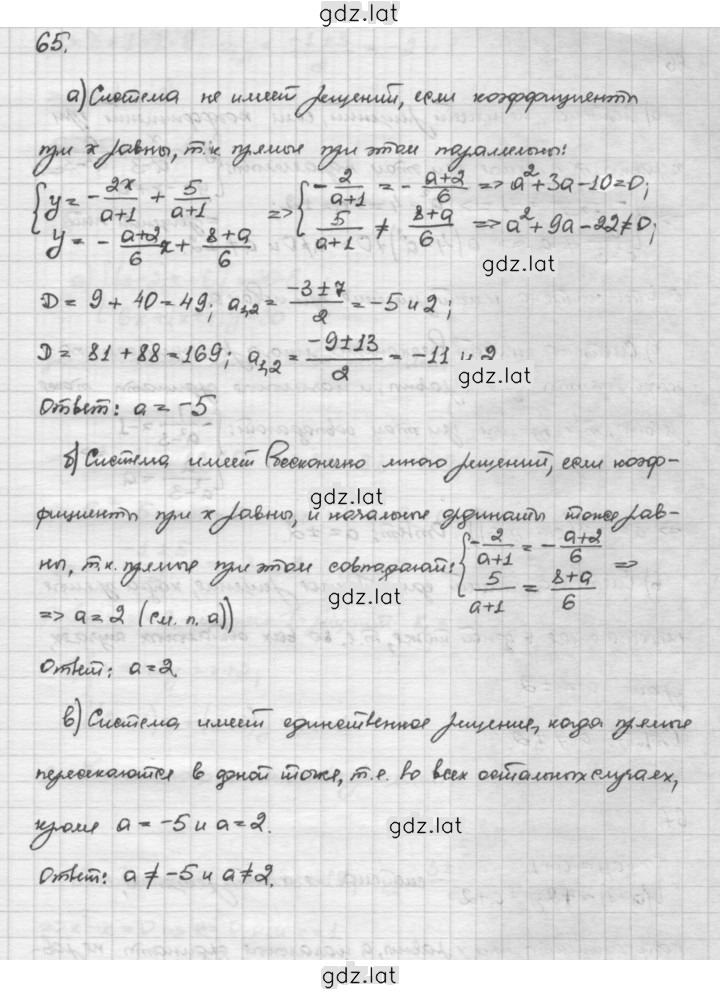 gdz.lat
65.
а) Система не имеет решений, если коэффициенты
при x равны, т.к прямые при этом параллельны:
{ y = -2x/(a+1) + 5/(a+1) => { -2/(a+1) = -(a+2)/6 => a² + 3a - 10 = 0;
y = -(a+2)/6 x + (8+a)/6   5/(a+1) ≠ (8+a)/6 => a² + 9a - 22 ≠ 0;
gdz.lat
D = 9 + 40 = 49; a₁,₂ = (-3±7)/2 = -5 и 2;
D = 81 + 88 = 169; a₁,₂ = (-9±13)/2 = -11 и 2
gdz.lat
Ответ: a = -5
б) Система имеет бесконечно много решений, если коэф-
gdz.lat
фициенты при x равны, и начальные ординаты тоже рав-
ны, т.к. прямые при этом совпадают: { -2/(a+1) = -(a+2)/6   5/(a+1) = (8+a)/6 =>
gdz.lat
=> a = 2 (см. п. а))
Ответ: a = 2.
в) Система имеет единственное решение, когда прямые
пересекаются в одной точке, т.е. во всех остальных случаях,
кроме a = -5 и a = 2.
gdz.lat
Ответ: a ≠ -5 и a ≠ 2.
gdz.lat